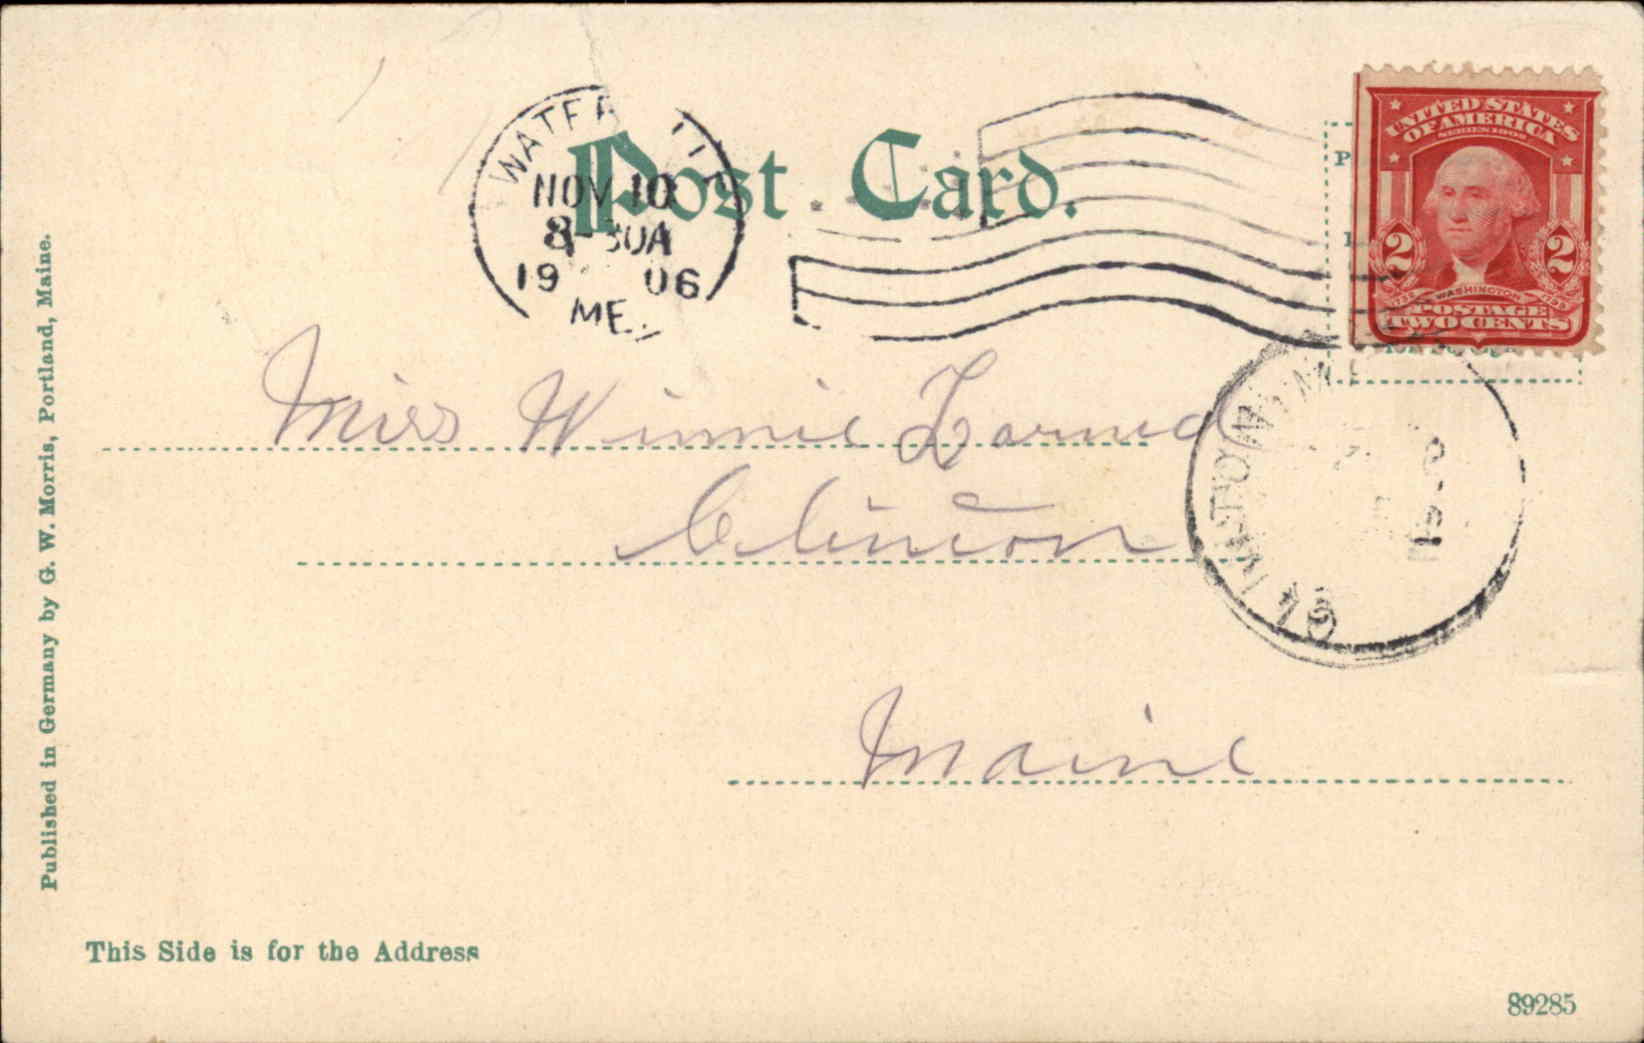 Post Card.
NOV 10
8-30A
1906
ME.
UNITED STATES
OF AMERICA
SERIES 1902
2 2
1732 WASHINGTON 1799
POSTAGE
TWO CENTS
Miss Winnie Larned
Clinton
Maine
Published in Germany by G. W. Morris, Portland, Maine.
This Side is for the Address
89285